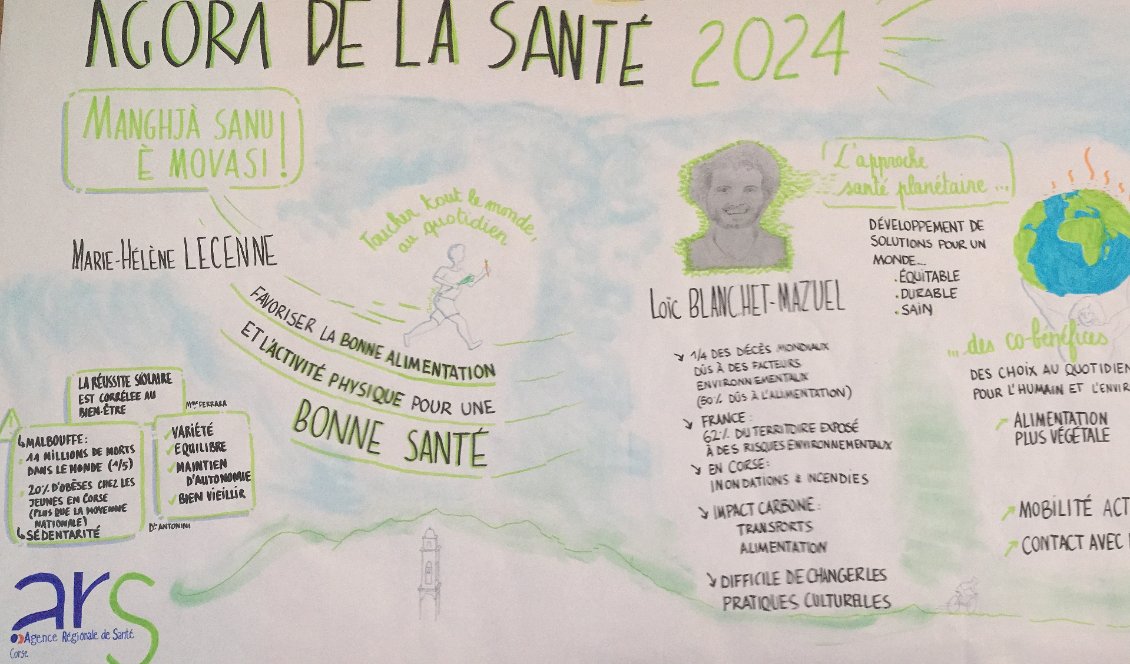 AGORA DE LA SANTÉ 2024
MANGHJÀ SANU
È MOVASI !
MARIE-HÉLÈNE LECENNE
Toucher tout le monde,
au quotidien
FAVORISER LA BONNE ALIMENTATION
ET L'ACTIVITÉ PHYSIQUE POUR UNE
BONNE SANTÉ
LA RÉUSSITE SCOLAIRE
EST CORRÉLÉE AU
BIEN-ÊTRE
MALBOUFFE :
11 MILLIONS DE MORTS
DANS LE MONDE (1/5)
20% D'OBÈSES CHEZ LES
JEUNES EN CORSE
(PLUS QUE LA MOYENNE
NATIONALE)
SÉDENTARITÉ
VARIÉTÉ
EQUILIBRE
MAINTIEN
D'AUTONOMIE
BIEN VIEILLIR
ANTONINI
ars
Agence Régionale de Santé
Corse
LOÏC BLANCHET-MAZUEL
1/4 DES DÉCÈS MONDIAUX
DÛS À DES FACTEURS
ENVIRONNEMENTAUX
(50% DÛS À L'ALIMENTATION)
FRANCE :
62% DU TERRITOIRE EXPOSÉ
À DES RISQUES ENVIRONNEMENTAUX
EN CORSE :
INONDATIONS & INCENDIES
IMPACT CARBONE :
TRANSPORTS
ALIMENTATION
DIFFICILE DE CHANGER LES
PRATIQUES CULTURELLES
L'approche
santé planétaire ...
DÉVELOPPEMENT DE
SOLUTIONS POUR UN
MONDE...
. ÉQUITABLE
. DURABLE
. SAIN
... des co-bénéfices
DES CHOIX AU QUOTIDIEN
POUR L'HUMAIN ET L'ENVIR
ALIMENTATION
PLUS VÉGÉTALE
MOBILITÉ ACT
CONTACT AVEC